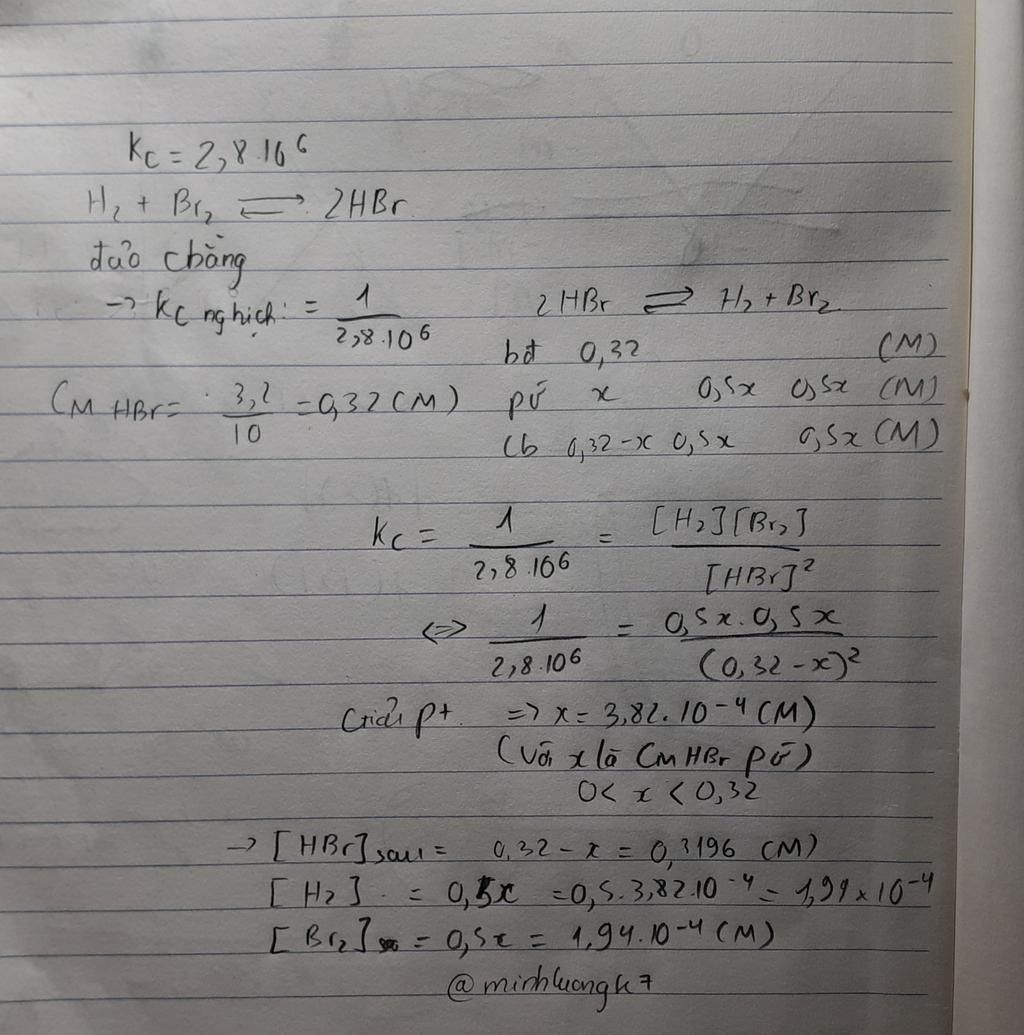 Kc = 2,8.10⁶
H₂ + Br₂ ⇌ 2HBr
đảo chằng
→ Kc nghịch: = 1/2,8.10⁶
CM HBr = 3,2/10 = 0,32 (M)
2HBr ⇌ H₂ + Br₂
bđ 0,32 (M)
pứ x 0,5x 0,5x (M)
Cb 0,32-x 0,5x 0,5x (M)
Kc = 1/2,8.10⁶ = [H₂][Br₂]/[HBr]²
⇔ 1/2,8.10⁶ = 0,5x.0,5x/(0,32-x)²
Giải pt. => x = 3,82.10⁻⁴ (M)
(với x là CM HBr pứ)
0 < x < 0,32
→ [HBr]sau = 0,32 - x = 0,3196 (M)
[H₂] = 0,5x = 0,5.3,82.10⁻⁴ = 1,91 x 10⁻⁴
[Br₂] = 0,5x = 1,94.10⁻⁴ (M)
@minhluongk7